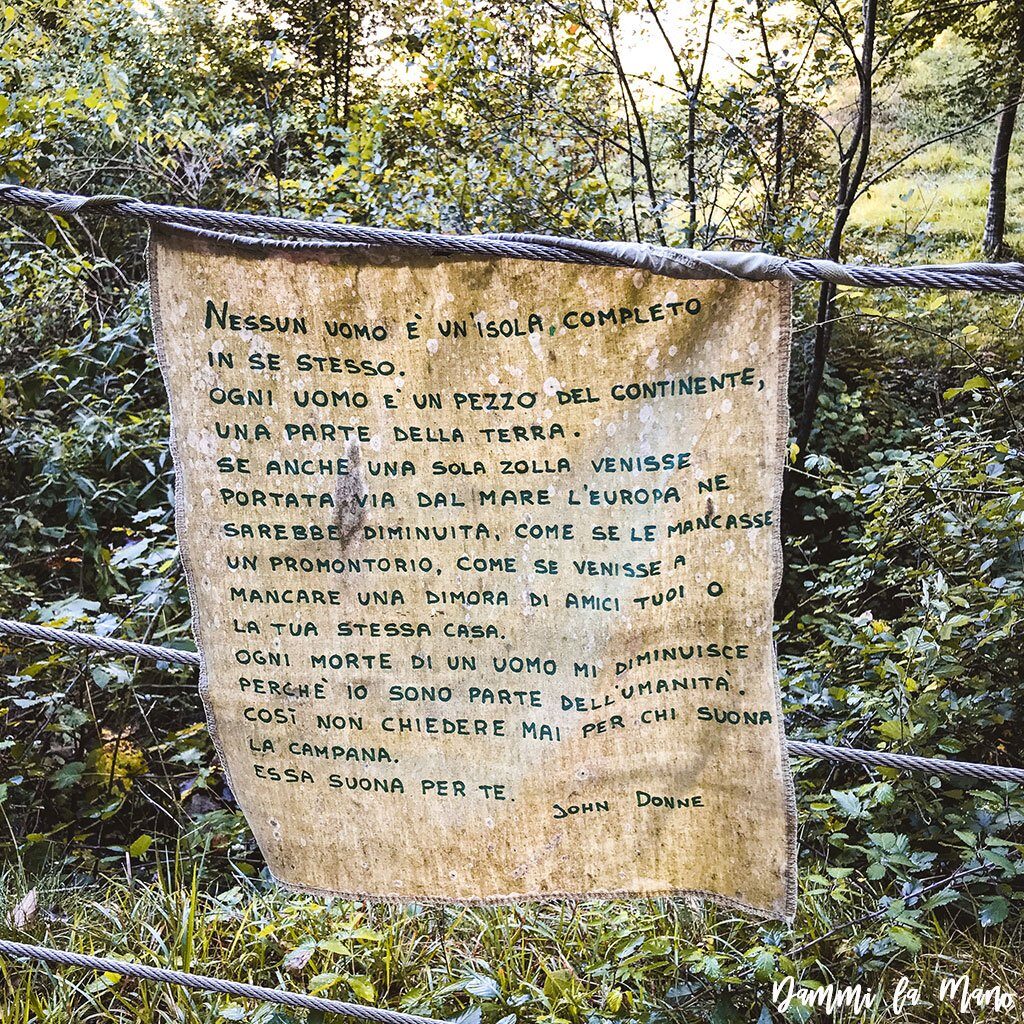 NESSUN UOMO È UN'ISOLA, COMPLETO
IN SE STESSO.
OGNI UOMO E' UN PEZZO DEL CONTINENTE,
UNA PARTE DELLA TERRA.
SE ANCHE UNA SOLA ZOLLA VENISSE
PORTATA VIA DAL MARE L'EUROPA NE
SAREBBE DIMINUITA, COME SE LE MANCASSE
UN PROMONTORIO, COME SE VENISSE A
MANCARE UNA DIMORA DI AMICI TUOI O
LA TUA STESSA CASA.
OGNI MORTE DI UN UOMO MI DIMINUISCE
PERCHÈ IO SONO PARTE DELL'UMANITÀ.
COSÌ NON CHIEDERE MAI PER CHI SUONA
LA CAMPANA.
ESSA SUONA PER TE.
JOHN DONNE
Dammi la Mano